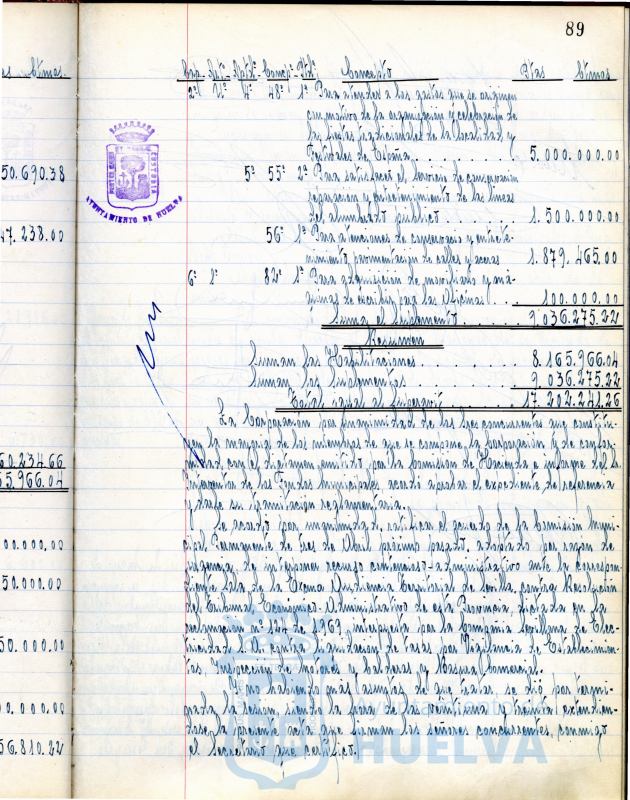 89
as btmas.
50.690.38
47.238.00
60.234.66
65.966.04
00.000.00
50.000.00
50.000.00
00.000.00
56.810.22
AYUNTAMIENTO DE HUELVA
Cap. Art. Aptdº Concpº Ptdª Concepto Ptas btmas
2º 11º 4º 48º 1ª Para atender a los gastos que se originen
con motivo de la organización y celebración de
las fiestas tradicionales de la localidad y
Festivales de España 5.000.000.00
5º 55º 2ª Para satisfacer el servicio de conservación
reparación y entretenimiento de las líneas
del alumbrado público 1.500.000.00
56º 1ª Para atenciones de conservación y entrete-
nimiento pavimentación de calles y aceras 1.879.465.00
6º 1º 82º 1ª Para adquisición de mobiliario y má-
quinas de escribir para las Oficinas 100.000.00
Suma el Suplemento 9.036.275.22
Resumen
Suman las Habilitaciones 8.165.966.04
Suman los Suplementos 9.036.275.22
Total igual al Superavit 17.202.241.26
La Corporación por unanimidad de los tres concurrentes que constitu-
yen la mayoría de los miembros de que se compone la Corporación y de confor-
midad con el dictamen emitido por la Comisión de Hacienda e informe de la
Intervención de los Fondos Municipales acordó aprobar el expediente de referencia
y darle su tramitación reglamentaria.
Se acordó por unanimidad, ratificar el acuerdo de la Comisión Muni-
cipal Permanente de tres de Abril próximo pasado, adoptado por razón de
urgencia, de interponer recurso contencioso-administrativo ante la correspon-
diente Sala de la Excma Audiencia Territorial de Sevilla, contra Resolución
del Tribunal Económico-Administrativo de esta Provincia, dictada en la
reclamación nº 127 de 1.969, interpuesta por la Compañía Sevillana de Elec-
tricidad S.A. contra liquidación de tasas por Vigilancia de Establecimien-
tos, Inspección de motores, Calderas y Máquina Comercial.
Y no habiendo más asuntos de que tratar, se dió por termi-
nada la sesión, siendo la hora de las veintiuna y treinta, extendién-
dose la presente acta que firman los señores concurrentes, conmigo
el Secretario que certifico.
Ayuntamiento de
HUELVA